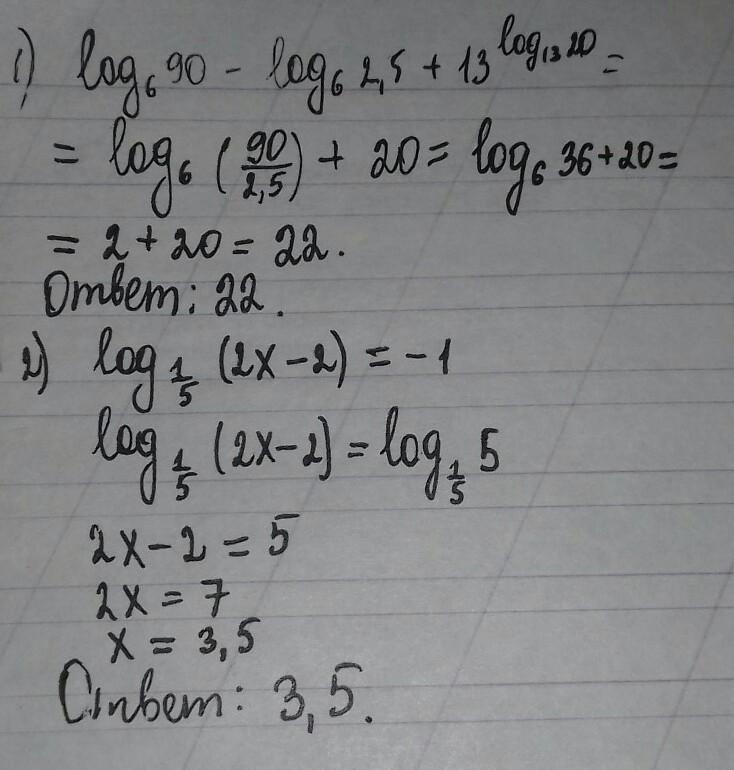 1) log₆90 − log₆2,5 + 13^(log₁₃20) =
= log₆(90/2,5) + 20 = log₆36 + 20 =
= 2 + 20 = 22.
Ответ: 22.
2) log_(1/5)(2x−2) = −1
log_(1/5)(2x−2) = log_(1/5)5
2x−2 = 5
2x = 7
x = 3,5
Ответ: 3,5.